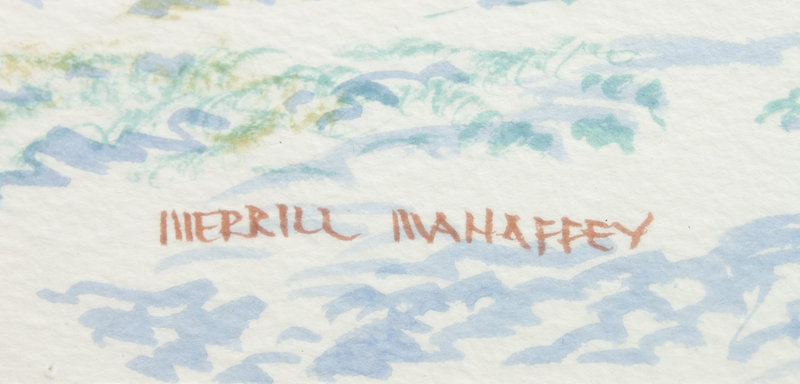 MERRILL MAHAFFEY